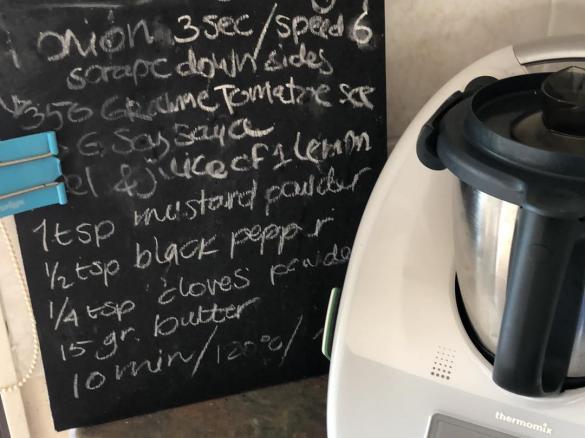 1 onion 3sec/speed 6
scrape down sides
350 Gramme Tomatoe sce
G Soy sauce
el & juice of 1 lemon
1 tsp mustard powder
1/2 tsp black pepper
1/4 tsp cloves powde
15 gr. butter
10 min/120°/
thermomix